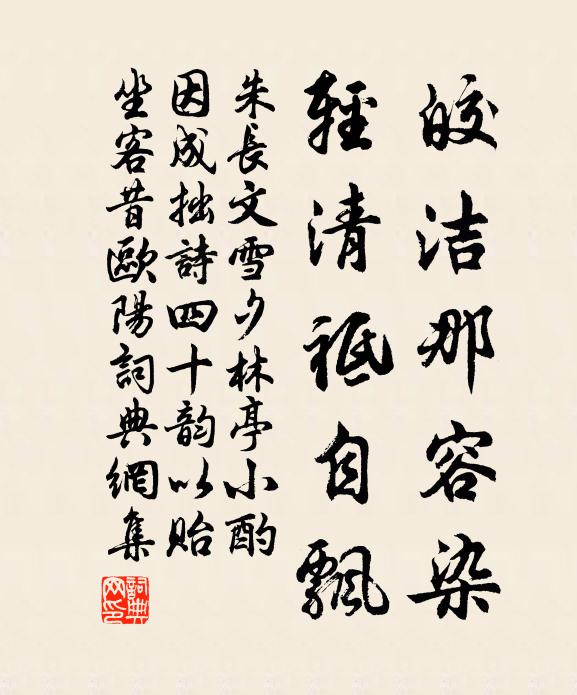 皎洁那容染
輕清祗自飄
朱長文雪夕林亭小酌
因成拙詩四十韵以貽
坐客昔歐陽詞典網集
詞典網印